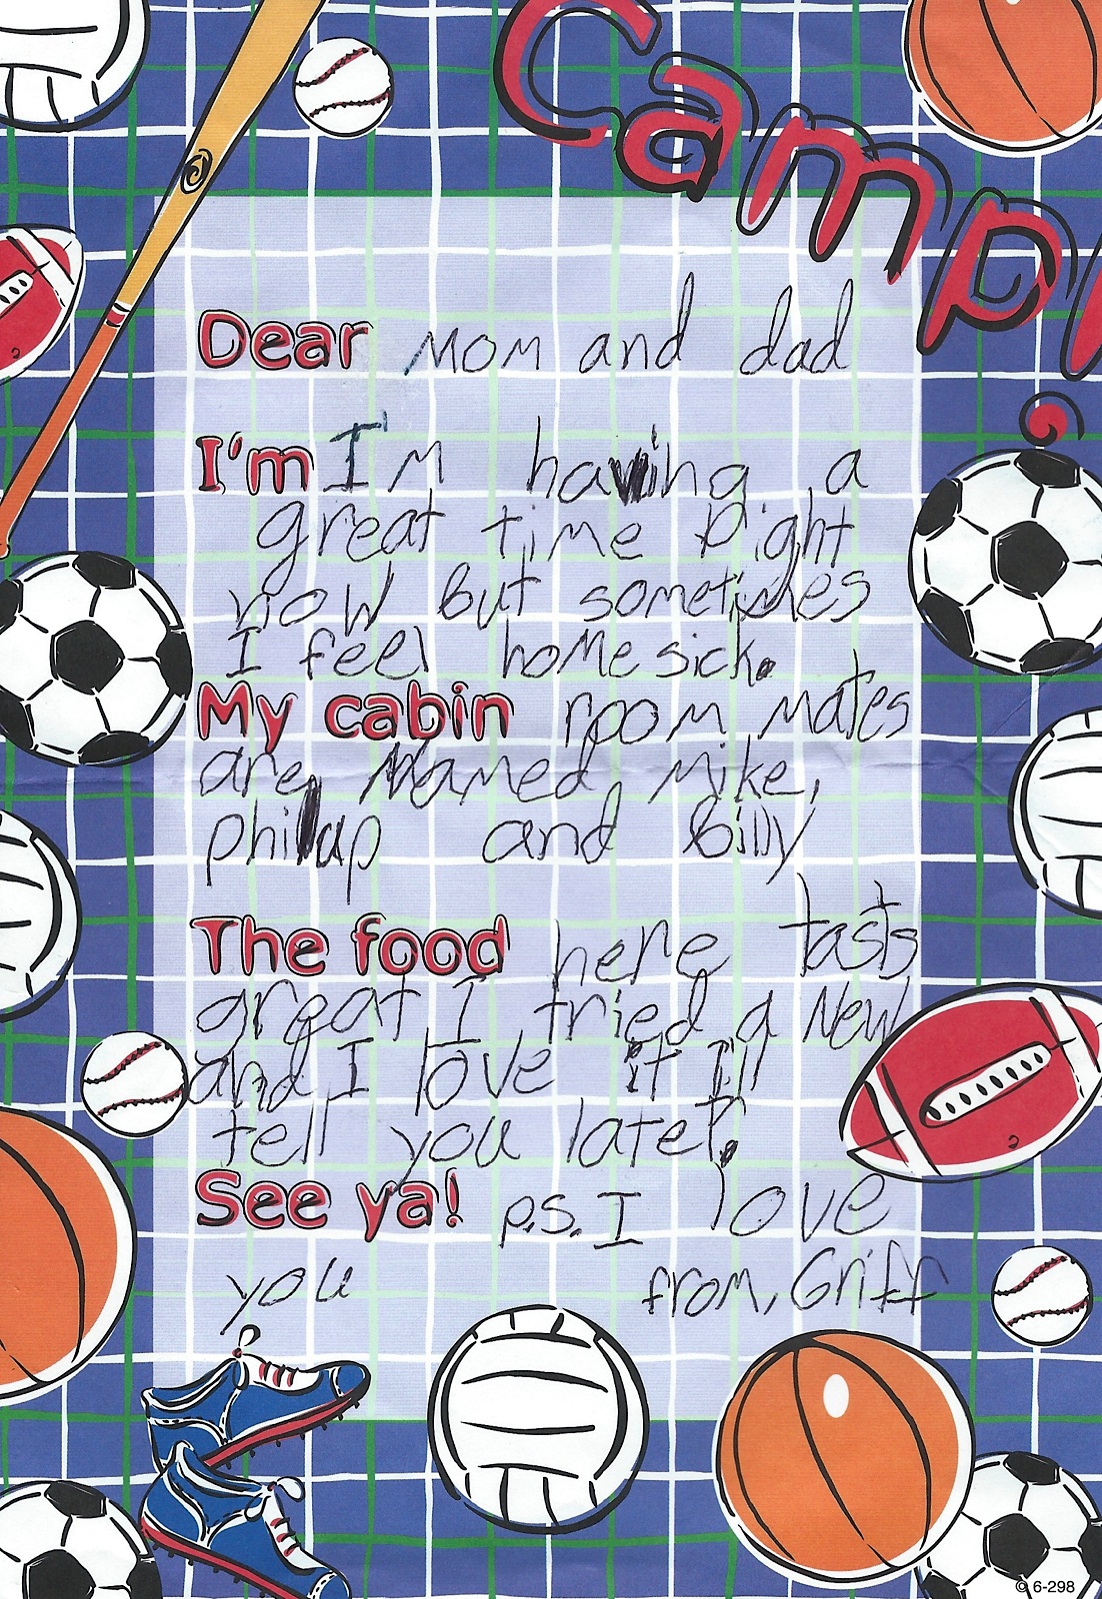 Camp!
Dear Mom and dad
I'm I'm having a
great time Right
now but sometimes
I feel home sick.
My cabin room mates
are Named Mike,
philap and Billy
The food here tasts
great I tried a New
and I love it I'll
tell you later.
See ya! p.s. I love
you from, Griff
© 6-298